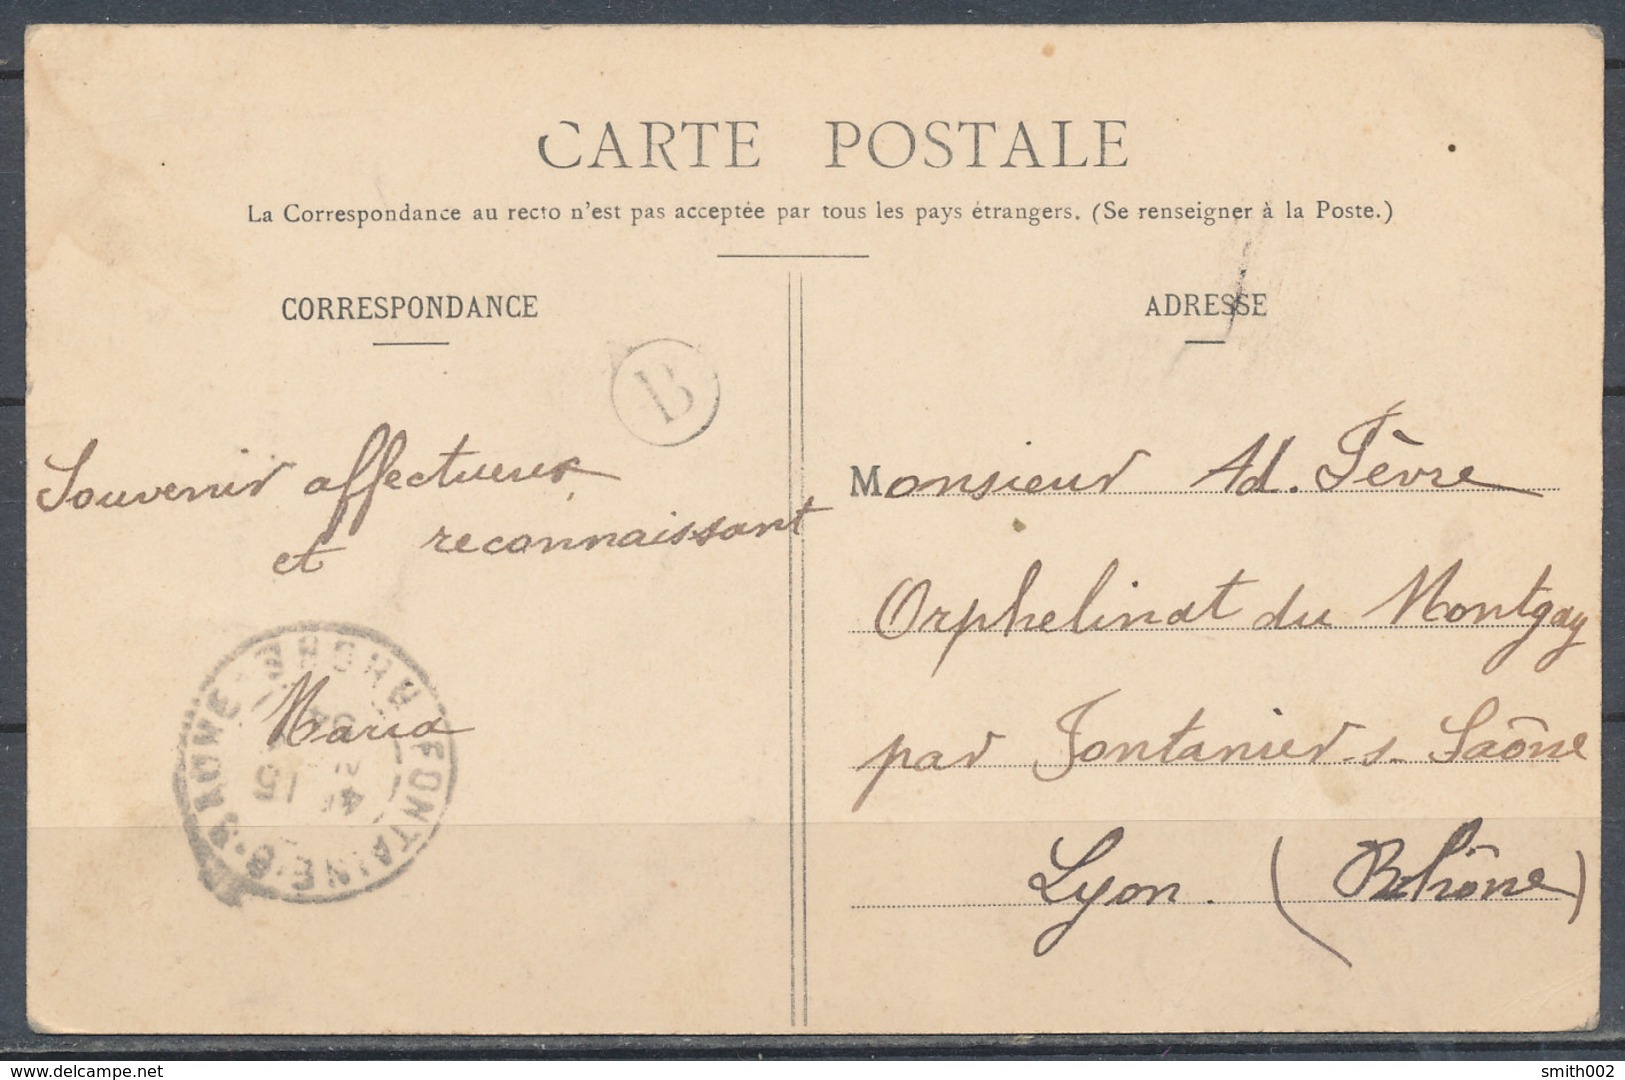 CARTE POSTALE
La Correspondance au recto n'est pas acceptée par tous les pays étrangers. (Se renseigner à la Poste.)
CORRESPONDANCE
B
Souvenir affectueux
et reconnaissant
Maria
FONTAINES-S-SAONE RHONE
ADRESSE
Monsieur Ad. Fèvre
Orphelinat du Montgay
par Fontanier-s-Saône
Lyon. (Rhône)
delcampe.net
smith002